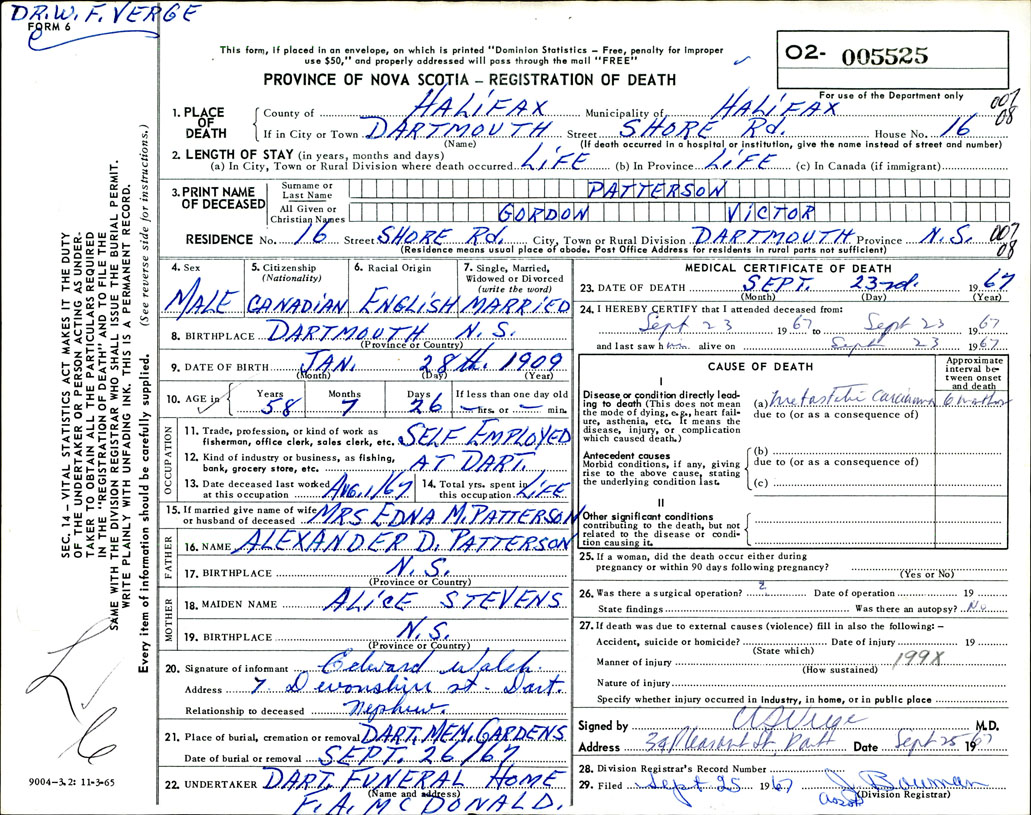 DR. W. F. VERGE
FORM 6
This form, if placed in an envelope, on which is printed "Dominion Statistics – Free, penalty for improper
use $50," and properly addressed will pass through the mail "FREE"
O2- 005525
PROVINCE OF NOVA SCOTIA – REGISTRATION OF DEATH
For use of the Department only
007
08
1. PLACE OF DEATH County of HALIFAX Municipality of HALIFAX
If in City or Town DARTMOUTH Street SHORE Rd. House No. 16
(Name) (If death occurred in a hospital or institution, give the name instead of street and number)
2. LENGTH OF STAY (in years, months and days)
(a) In City, Town or Rural Division where death occurred LIFE (b) In Province LIFE (c) In Canada (if immigrant)
3. PRINT NAME OF DECEASED Surname or Last Name PATTERSON
All Given or Christian Names GORDON VICTOR
RESIDENCE No. 16 Street SHORE Rd. City, Town or Rural Division DARTMOUTH Province N.S.
007
08
(Residence means usual place of abode. Post Office Address for residents in rural parts not sufficient)
4. Sex 5. Citizenship (Nationality) 6. Racial Origin 7. Single, Married, Widowed or Divorced (write the word)
MALE CANADIAN ENGLISH MARRIED
8. BIRTHPLACE DARTMOUTH N.S.
(Province or Country)
9. DATE OF BIRTH JAN. 28th. 1909
(Month) (Day) (Year)
10. AGE in Years Months Days If less than one day old
58 7 26 — hrs. or — min.
OCCUPATION
11. Trade, profession, or kind of work as
fisherman, office clerk, sales clerk, etc. SELF EMPLOYED
12. Kind of industry or business, as fishing,
bank, grocery store, etc. AT DART.
13. Date deceased last worked at this occupation AUG. 1/67 14. Total yrs. spent in this occupation LIFE
15. If married give name of wife or husband of deceased MRS EDNA M. PATTERSON
FATHER
16. NAME ALEXANDER D. PATTERSON
17. BIRTHPLACE N.S.
(Province or Country)
MOTHER
18. MAIDEN NAME ALICE STEVENS
19. BIRTHPLACE N.S.
(Province or Country)
20. Signature of informant Edward Walsh
Address 7 Devonshire st. Dart.
Relationship to deceased nephew.
21. Place of burial, cremation or removal DART. MEM. GARDENS
Date of burial or removal SEPT. 26/67
22. UNDERTAKER DART. FUNERAL HOME
(Name and address)
F. A. MCDONALD.
MEDICAL CERTIFICATE OF DEATH
23. DATE OF DEATH SEPT. 23rd. 1967
(Month) (Day) (Year)
24. I HEREBY CERTIFY that I attended deceased from:
Sept 23 1967 to Sept 23 1967
and last saw him alive on Sept 23 1967
CAUSE OF DEATH
Approximate interval between onset and death
I
Disease or condition directly leading to death (This does not mean the mode of dying, e.g., heart failure, asthenia, etc. It means the disease, injury, or complication which caused death.)
(a) metastatic carcinoma 6 months
due to (or as a consequence of)
Antecedent causes
Morbid conditions, if any, giving rise to the above cause, stating the underlying condition last.
(b)
due to (or as a consequence of)
(c)
II
Other significant conditions contributing to the death, but not related to the disease or condition causing it.
25. If a woman, did the death occur either during
pregnancy or within 90 days following pregnancy?
(Yes or No)
26. Was there a surgical operation? 2 Date of operation 19
State findings Was there an autopsy? No
27. If death was due to external causes (violence) fill in also the following: –
Accident, suicide or homicide? Date of injury 19
(State which)
Manner of injury 199X
(How sustained)
Nature of injury
Specify whether injury occurred in Industry, in home, or in public place
Signed by M.D.
Address 34 Pleasant St Dart Date Sept 25 1967
28. Division Registrar's Record Number
29. Filed Sept 25 1967 J. Bauman
(Division Registrar)
SEC. 14 – VITAL STATISTICS ACT MAKES IT THE DUTY
OF THE UNDERTAKER OR PERSON ACTING AS UNDER-
TAKER TO OBTAIN ALL THE PARTICULARS REQUIRED
IN THE "REGISTRATION OF DEATH" AND TO FILE THE
SAME WITH THE DIVISION REGISTRAR WHO SHALL ISSUE THE BURIAL PERMIT.
WRITE PLAINLY WITH UNFADING INK. THIS IS A PERMANENT RECORD.
Every item of information should be carefully supplied. (See reverse side for instructions.)
9004-3.2: 11-3-65